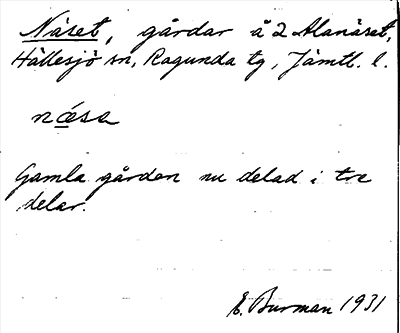 Näset, gårdar å 2 Alanäset,
Hällesjö sn, Ragunda tg, Jämtl. l.
næsa
Gamla gården nu delad i tre
delar.
E. Burman 1931